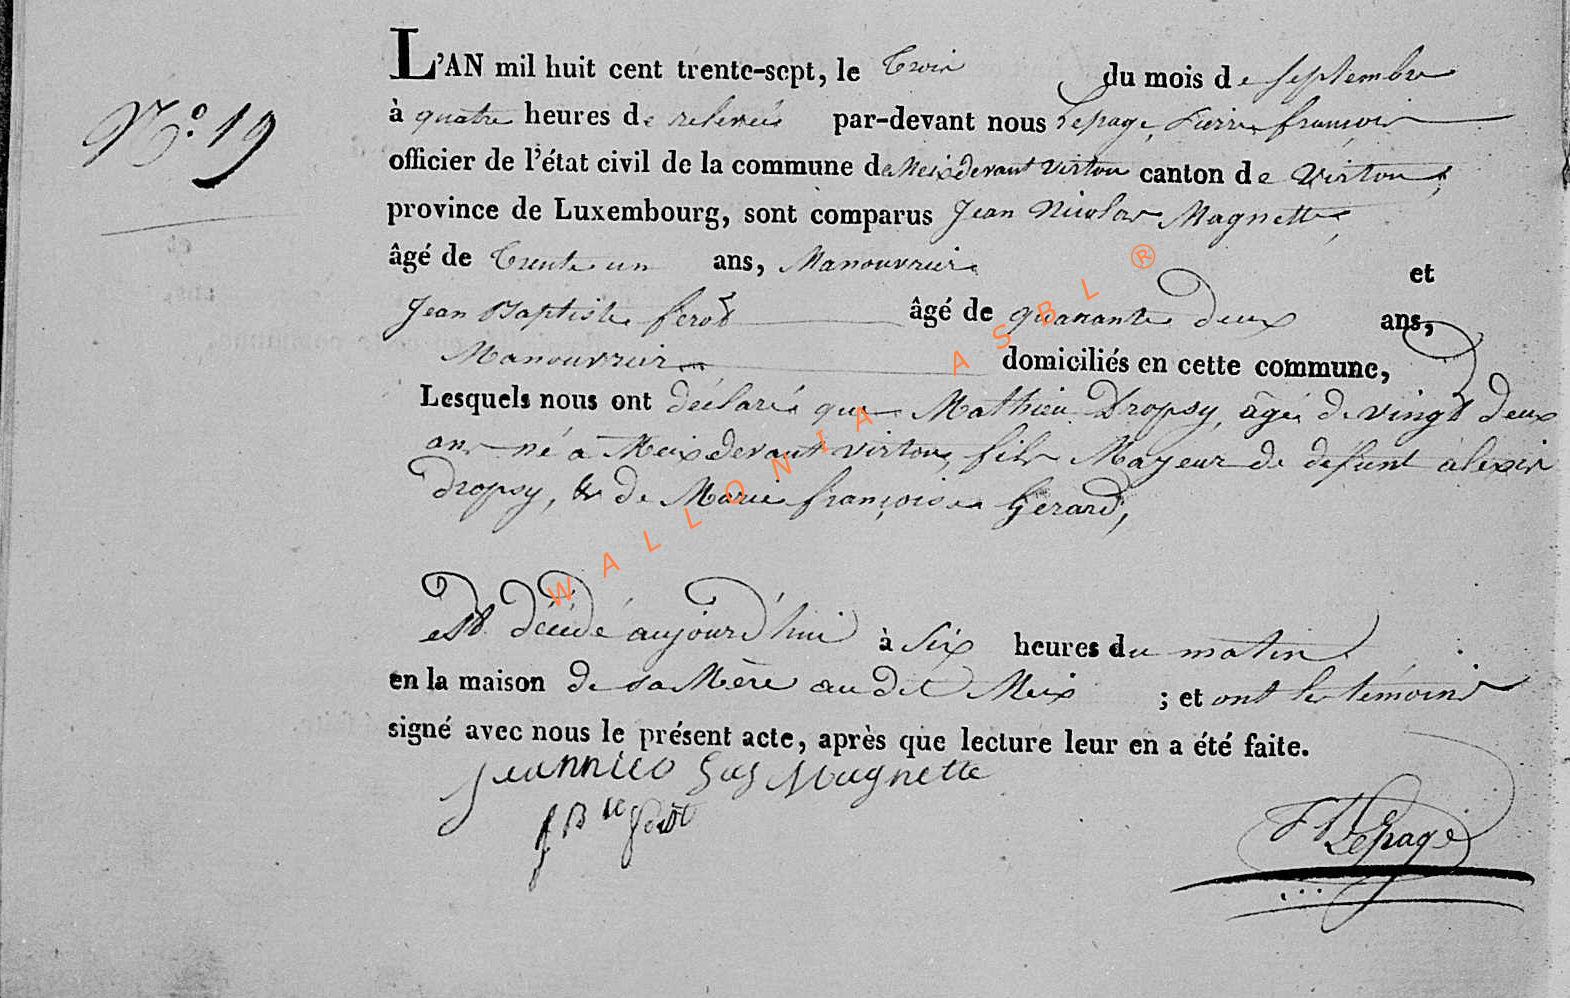 N.° 19
L'AN mil huit cent trente-sept, le Trois du mois de septembre
à quatre heures de relevée par-devant nous Lepage, Pierre françois
officier de l'état civil de la commune de Meix devant Virton canton de Virton,
province de Luxembourg, sont comparus Jean Nicolas Magnette,
âgé de Trente un ans, Manouvrier et
Jean Baptiste ferot âgé de quarante deux ans,
Manouvrier domiciliés en cette commune,
Lesquels nous ont déclaré que Mathieu Dropsy, âgé de vingt deux
ans né à Meix devant virton, fils Mayeur de defunt alexis
Dropsy, & de Marie françoise Gerard,
est décédé aujourd'hui à Six heures du matin
en la maison de sa Mère au dit Meix ; et ont les témoins
signé avec nous le présent acte, après que lecture leur en a été faite.
jeannico las Magnette
J B te ferot
Lepage
WALLONIA ASBL ®